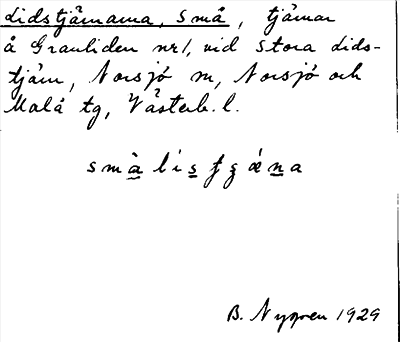 Lidstjärnarna, Små, tjärnar
å Granliden nr 1, vid Stora Lids-
tjärn, Norsjö sn, Norsjö och
Malå tg, Västerb. l.
B. Nygren 1929